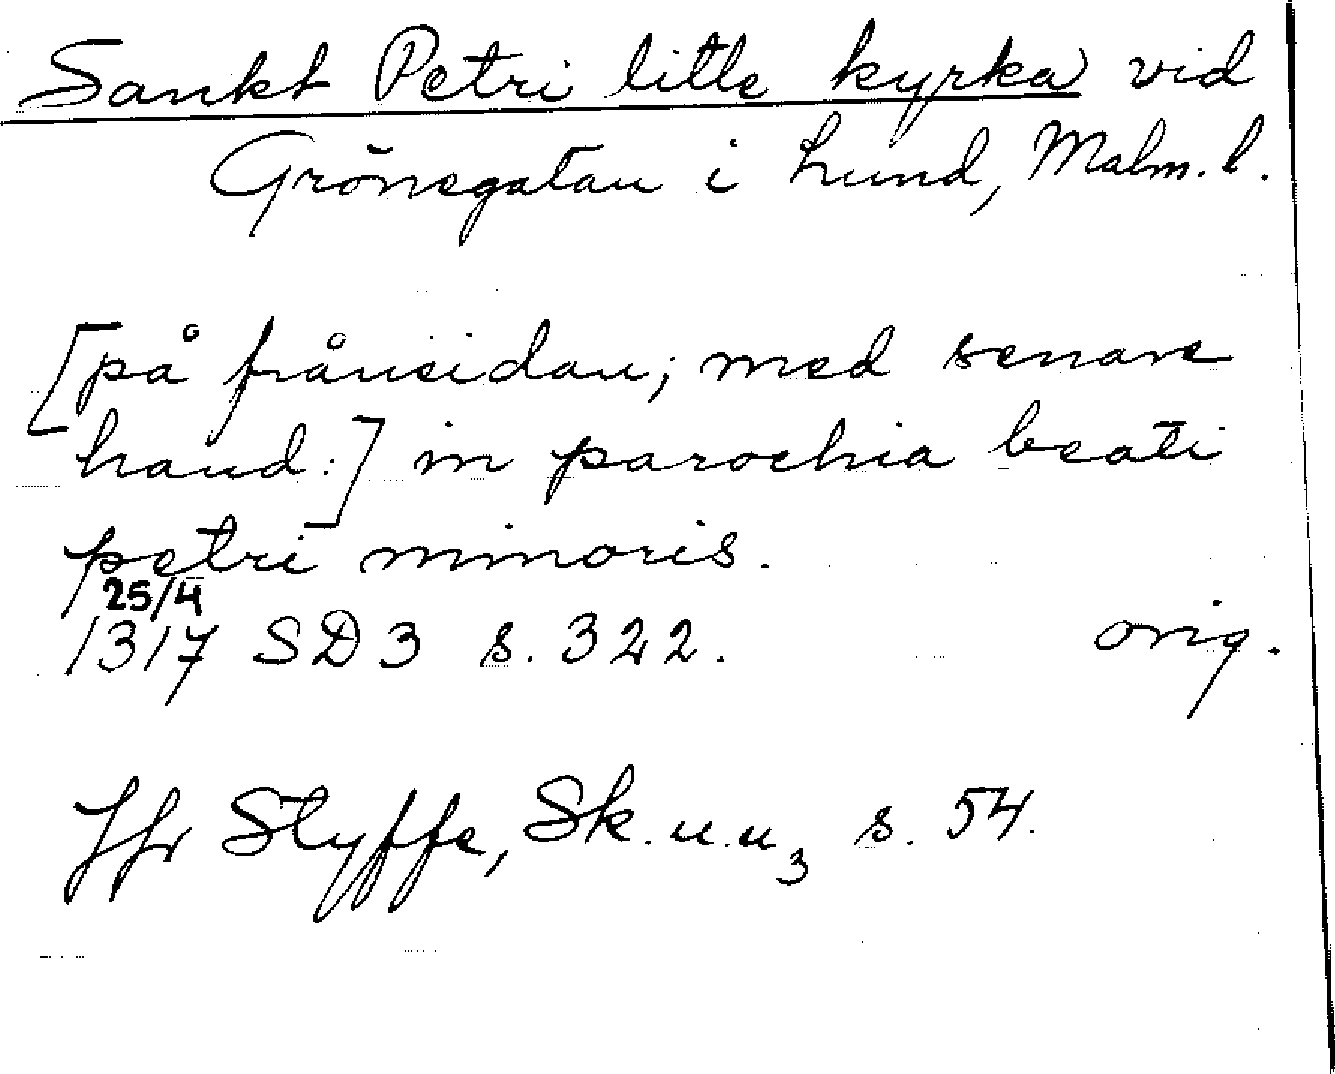 Sankt Petri litle kyrka vid
Grönegatan i Lund, Malm. l.
[på frånsidan; med senare
hand:] in parochia beati
petri minoris.
25/4
1317 SD 3 s. 322. orig.
Jfr Styffe, Sk. u. u₃ s. 54.